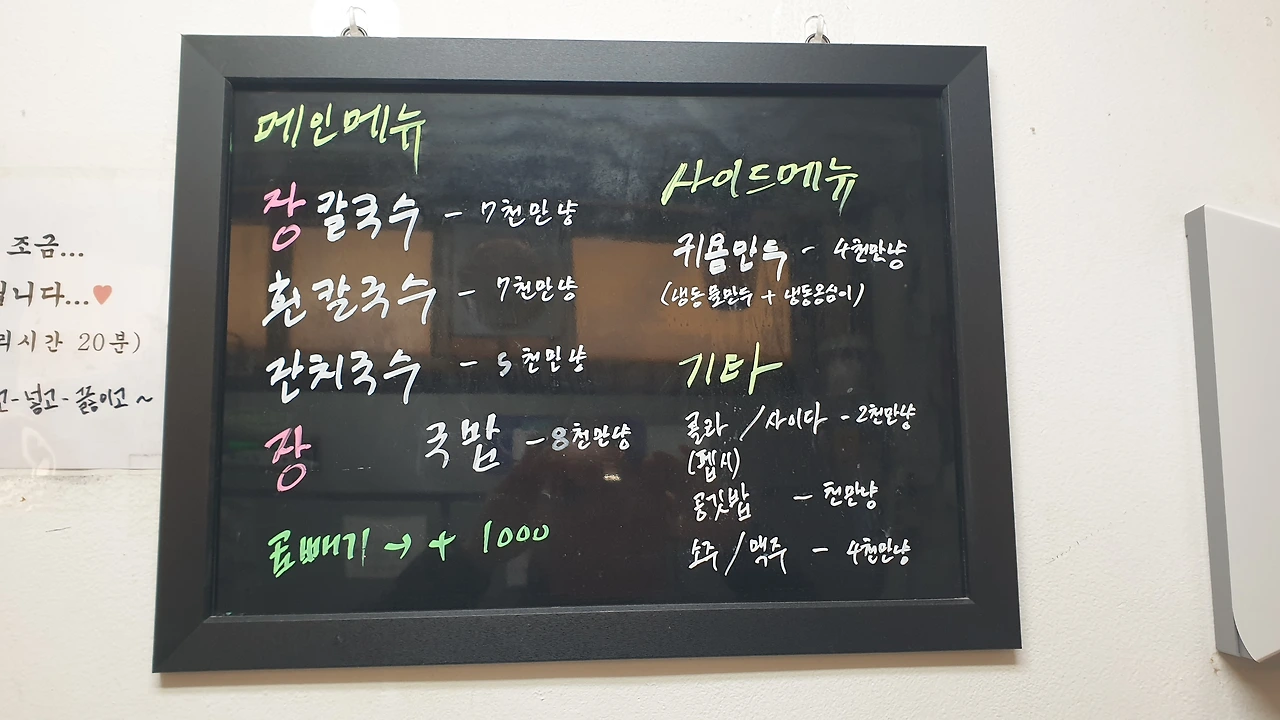 조금...
니다...♥
리시간 20분)
고-넣고-끓이고~
메인메뉴
장칼국수 - 7천만냥
흰칼국수 - 7천만냥
잔치국수 - 5천만냥
장 국밥 - 8천만냥
곱빼기 → + 1000
사이드메뉴
귀욤만두 - 4천만냥
(냉동물만두 + 냉동옹심이)
기타
콜라 / 사이다 - 2천만냥
(펩시)
공깃밥 - 천만냥
소주 / 맥주 - 4천만냥